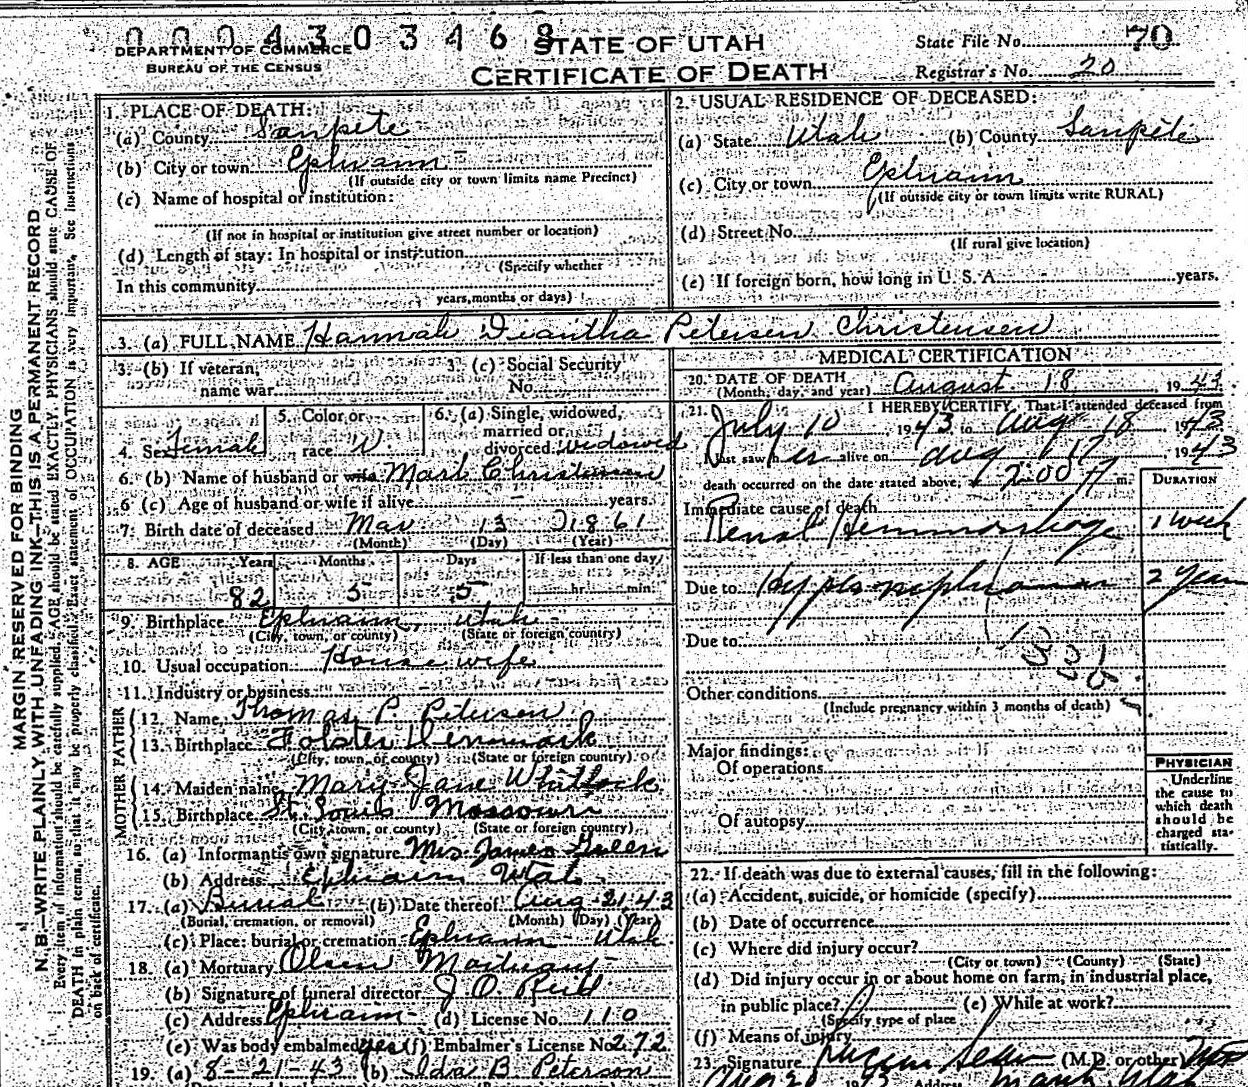 0 0 0 4 3 0 3 4 6 8
DEPARTMENT OF COMMERCE
BUREAU OF THE CENSUS
STATE OF UTAH
CERTIFICATE OF DEATH
State File No. 70
Registrar's No. 20
MARGIN RESERVED FOR BINDING
N. B.—WRITE PLAINLY, WITH UNFADING INK—THIS IS A PERMANENT RECORD
Every item of information should be carefully supplied. AGE should be stated EXACTLY. PHYSICIANS should state CAUSE OF
DEATH in plain terms, so that it may be properly classified. Exact statement of OCCUPATION is very important. See Instructions
on back of certificate.
1. PLACE OF DEATH:
(a) County Sanpete
(b) City or town Ephraim
(If outside city or town limits name Precinct)
(c) Name of hospital or institution:
(If not in hospital or institution give street number or location)
(d) Length of stay: In hospital or institution
(Specify whether
In this community
years, months or days)
2. USUAL RESIDENCE OF DECEASED:
(a) State Utah (b) County Sanpete
(c) City or town Ephraim
(If outside city or town limits write RURAL)
(d) Street No.
(If rural give location)
(e) If foreign born, how long in U. S. A. years.
3. (a) FULL NAME Hannah Diantha Petersen Christensen
3. (b) If veteran, name war
3. (c) Social Security No.
4. Sex Female
5. Color or race W
6. (a) Single, widowed, married or divorced Widowed
6. (b) Name of husband or wife Christensen
6 (c) Age of husband or wife if alive years.
7. Birth date of deceased Mar 13 1861
(Month) (Day) (Year)
8. AGE Years Months Days If less than one day
82 5 5 hr. min.
9. Birthplace Ephraim, Utah
(City, town, or county) (State or foreign country)
10. Usual occupation House wife
11. Industry or business
FATHER
12. Name Thomas P. Petersen
13. Birthplace Folster Denmark
(City, town, or county) (State or foreign country)
MOTHER
14. Maiden name Mary Jane Whitlock
15. Birthplace St. Louis Missouri
(City, town, or county) (State or foreign country)
16. (a) Informant's own signature Mrs James Green
(b) Address Ephraim Utah
17. (a) Burial (b) Date thereof Aug 21 43
(Burial, cremation, or removal) (Month) (Day) (Year)
(c) Place: burial or cremation Ephraim Utah
18. (a) Mortuary Olsen Mortuary
(b) Signature of funeral director J. O.
(c) Address Ephraim (d) License No. 110
(e) Was body embalmed yes (f) Embalmer's License No. 272
19. (a) 8-21-43 (b) Ida B Peterson
MEDICAL CERTIFICATION
20. DATE OF DEATH (Month, day, and year) August 18, 1943
21. I HEREBY CERTIFY, That I attended deceased from
July 10, 1943 to Aug 18, 1943
I last saw her alive on Aug 17, 1943
death occurred on the date stated above, 2:00 A m.
DURATION
Immediate cause of death
Renal Hemmorhage 1 week
Due to Hypernephroma 2 Year
Due to
Other conditions
(Include pregnancy within 3 months of death)
Major findings:
Of operations
Of autopsy
PHYSICIAN
Underline
the cause to
which death
should be
charged sta-
tistically.
22. If death was due to external causes, fill in the following:
(a) Accident, suicide, or homicide (specify)
(b) Date of occurrence
(c) Where did injury occur?
(City or town) (County) (State)
(d) Did injury occur in or about home on farm, in industrial place,
in public place? (e) While at work?
(Specify type of place
(f) Means of injury
23. Signature (M.D. or other)
Aug 20 1943 Address Manti Utah